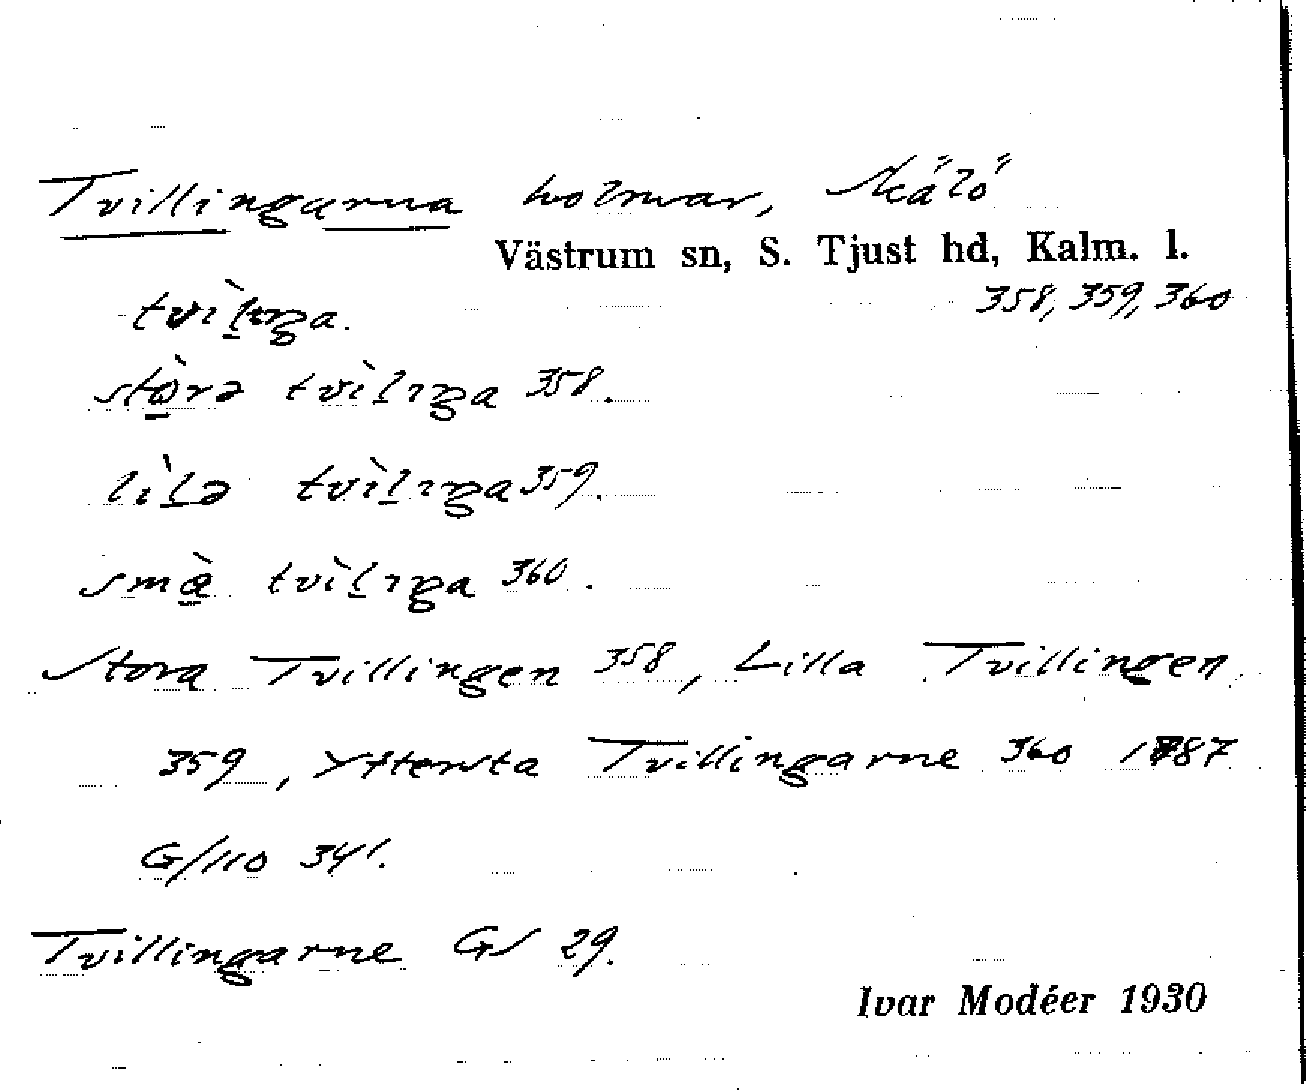 Tvillingarna holmar, Skälö
Västrum sn, S. Tjust hd, Kalm. l.
358, 359, 360
tvìlıŋa.
stòrə tvìlıŋa 358.
lìlə tvìlıŋa 359.
små̀ tvìlıŋa 360.
Stora Tvillingen 358, Lilla Tvillingen
359, Yttersta Tvillingarne 360 1787
G/110 34¹.
Tvillingarne GS 29.
Ivar Modéer 1930